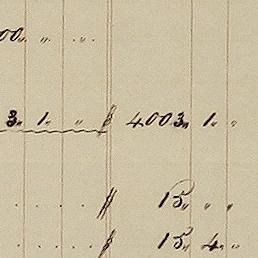 00 „ „ . „ .
3„ 1„ „ ∥ 4003„ 1„ „
. . . . ∥ 15„ „ „
. . . . ∥ 15„ 4„ „